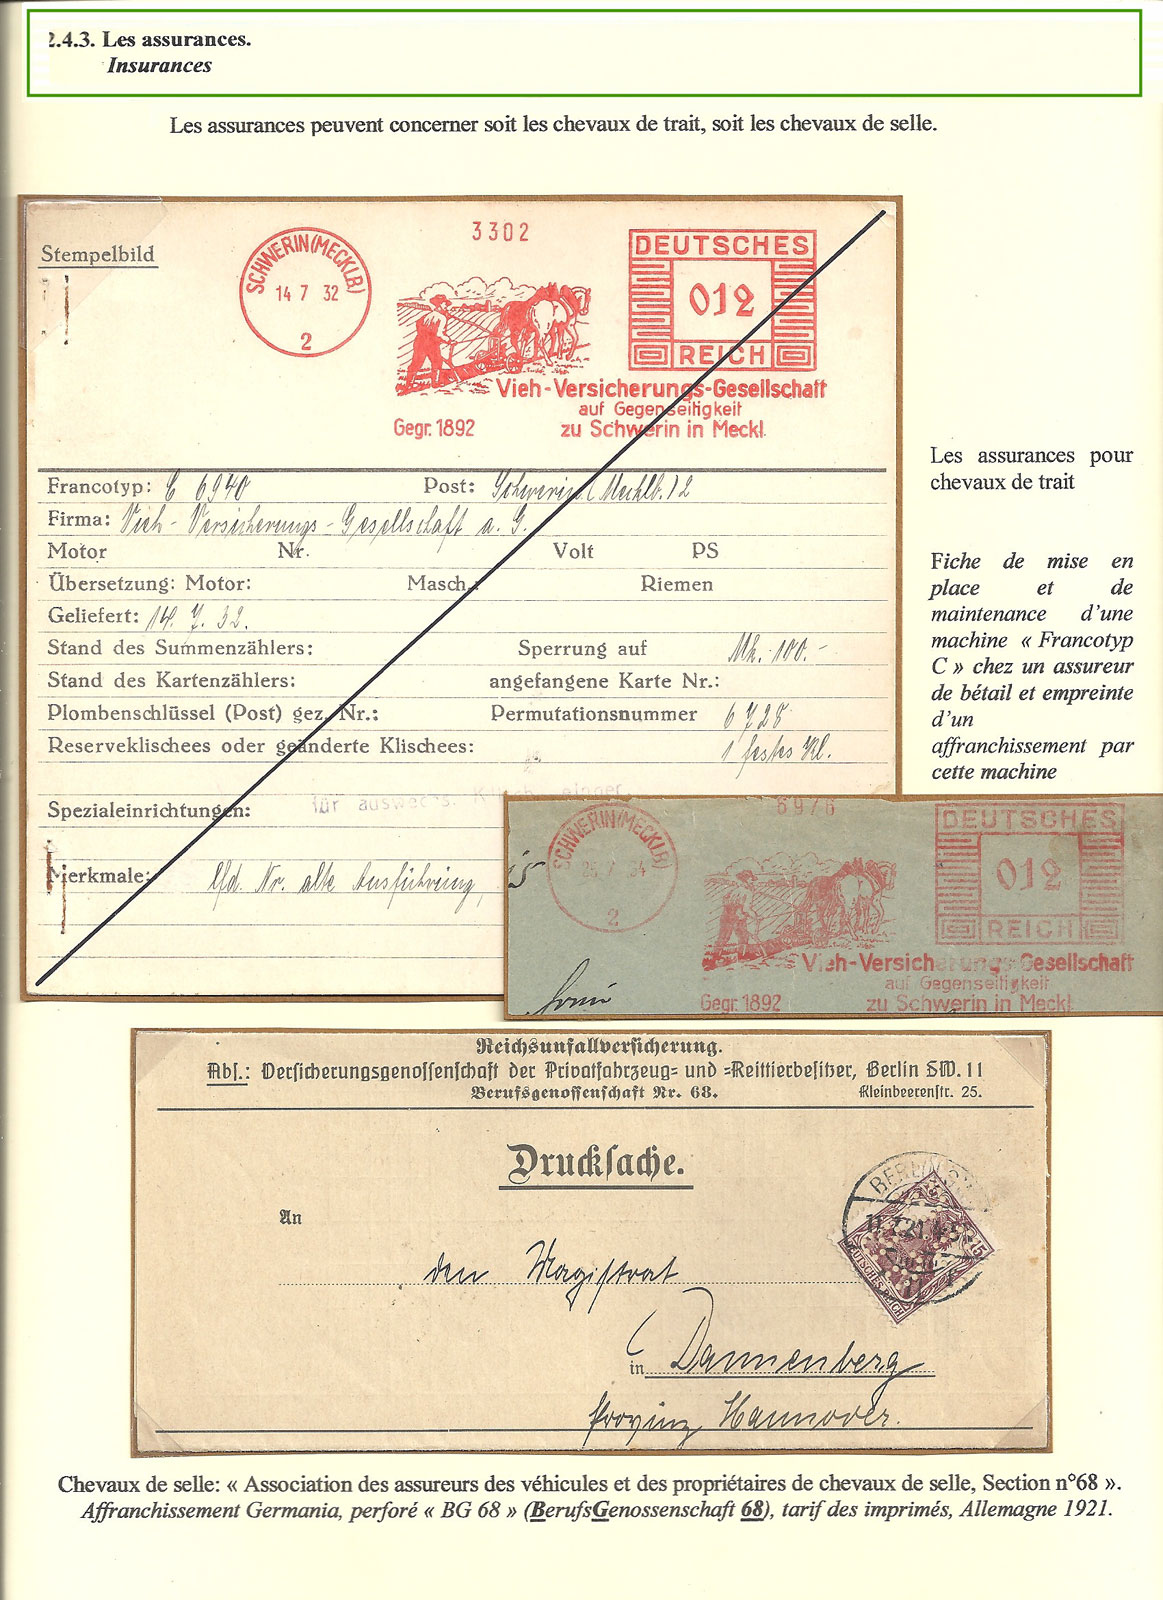 2.4.3. Les assurances.
Insurances
Les assurances peuvent concerner soit les chevaux de trait, soit les chevaux de selle.
Stempelbild
SCHWERIN (MECKLB)
14 7 32
2
3302
DEUTSCHES
012
REICH
Vieh-Versicherungs-Gesellschaft
auf Gegenseitigkeit
Gegr. 1892
zu Schwerin in Meckl.
Francotyp: C 6940 Post: Schwerin (Mecklb.) 2
Firma: Vieh-Versicherungs-Gesellschaft a. G.
Motor Nr. Volt PS
Übersetzung: Motor: Masch.: Riemen
Geliefert: 14. 7. 32.
Stand des Summenzählers: Sperrung auf Mk. 100.-
Stand des Kartenzählers: angefangene Karte Nr.:
Plombenschlüssel (Post) gez. Nr.: Permutationsnummer 6728
Reserveklischees oder geänderte Klischees: 1 festes Kl.
Spezialeinrichtungen: für auswechs.
Merkmale: lfd. Nr. alte Ausführung,
Les assurances pour
chevaux de trait
Fiche de mise en
place et de
maintenance d'une
machine « Francotyp
C » chez un assureur
de bétail et empreinte
d'un
affranchissement par
cette machine
SCHWERIN (MECKLB)
7 34
2
6976
DEUTSCHES
012
REICH
Vieh-Versicherungs-Gesellschaft
auf Gegenseitigkeit
Gegr. 1892
zu Schwerin in Meckl.
Reichsunfallversicherung.
Abs.: Versicherungsgenossenschaft der Privatfahrzeug- und -Reittierbesitzer, Berlin SW. 11
Berufsgenossenschaft Nr. 68. Kleinbeerenstr. 25.
Drucksache.
An
den Magistrat
in Dannenberg
Provinz Hannover.
BERLIN
15
DEUTSCHES REICH
Chevaux de selle: « Association des assureurs des véhicules et des propriétaires de chevaux de selle, Section n°68 ».
Affranchissement Germania, perforé « BG 68 » (BerufsGenossenschaft 68), tarif des imprimés, Allemagne 1921.